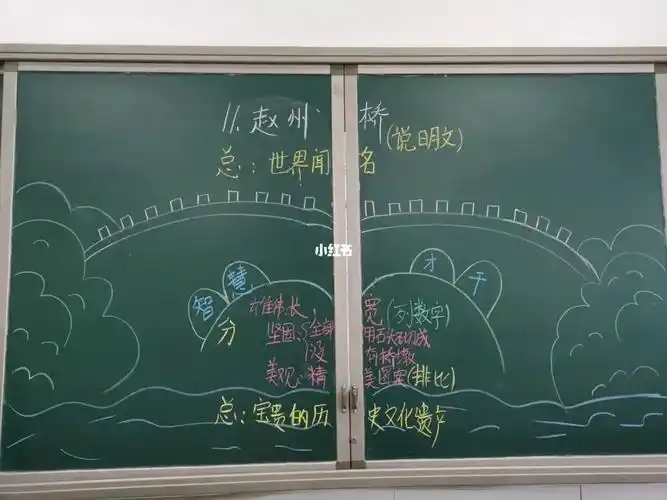 11.赵州桥(说明文)
总:世界闻名
小红书
智慧 才干
分
雄伟:长,宽(列数字)
坚固:全部用石头砌成
没有桥墩
美观:精美图案(排比)
总:宝贵的历史文化遗产